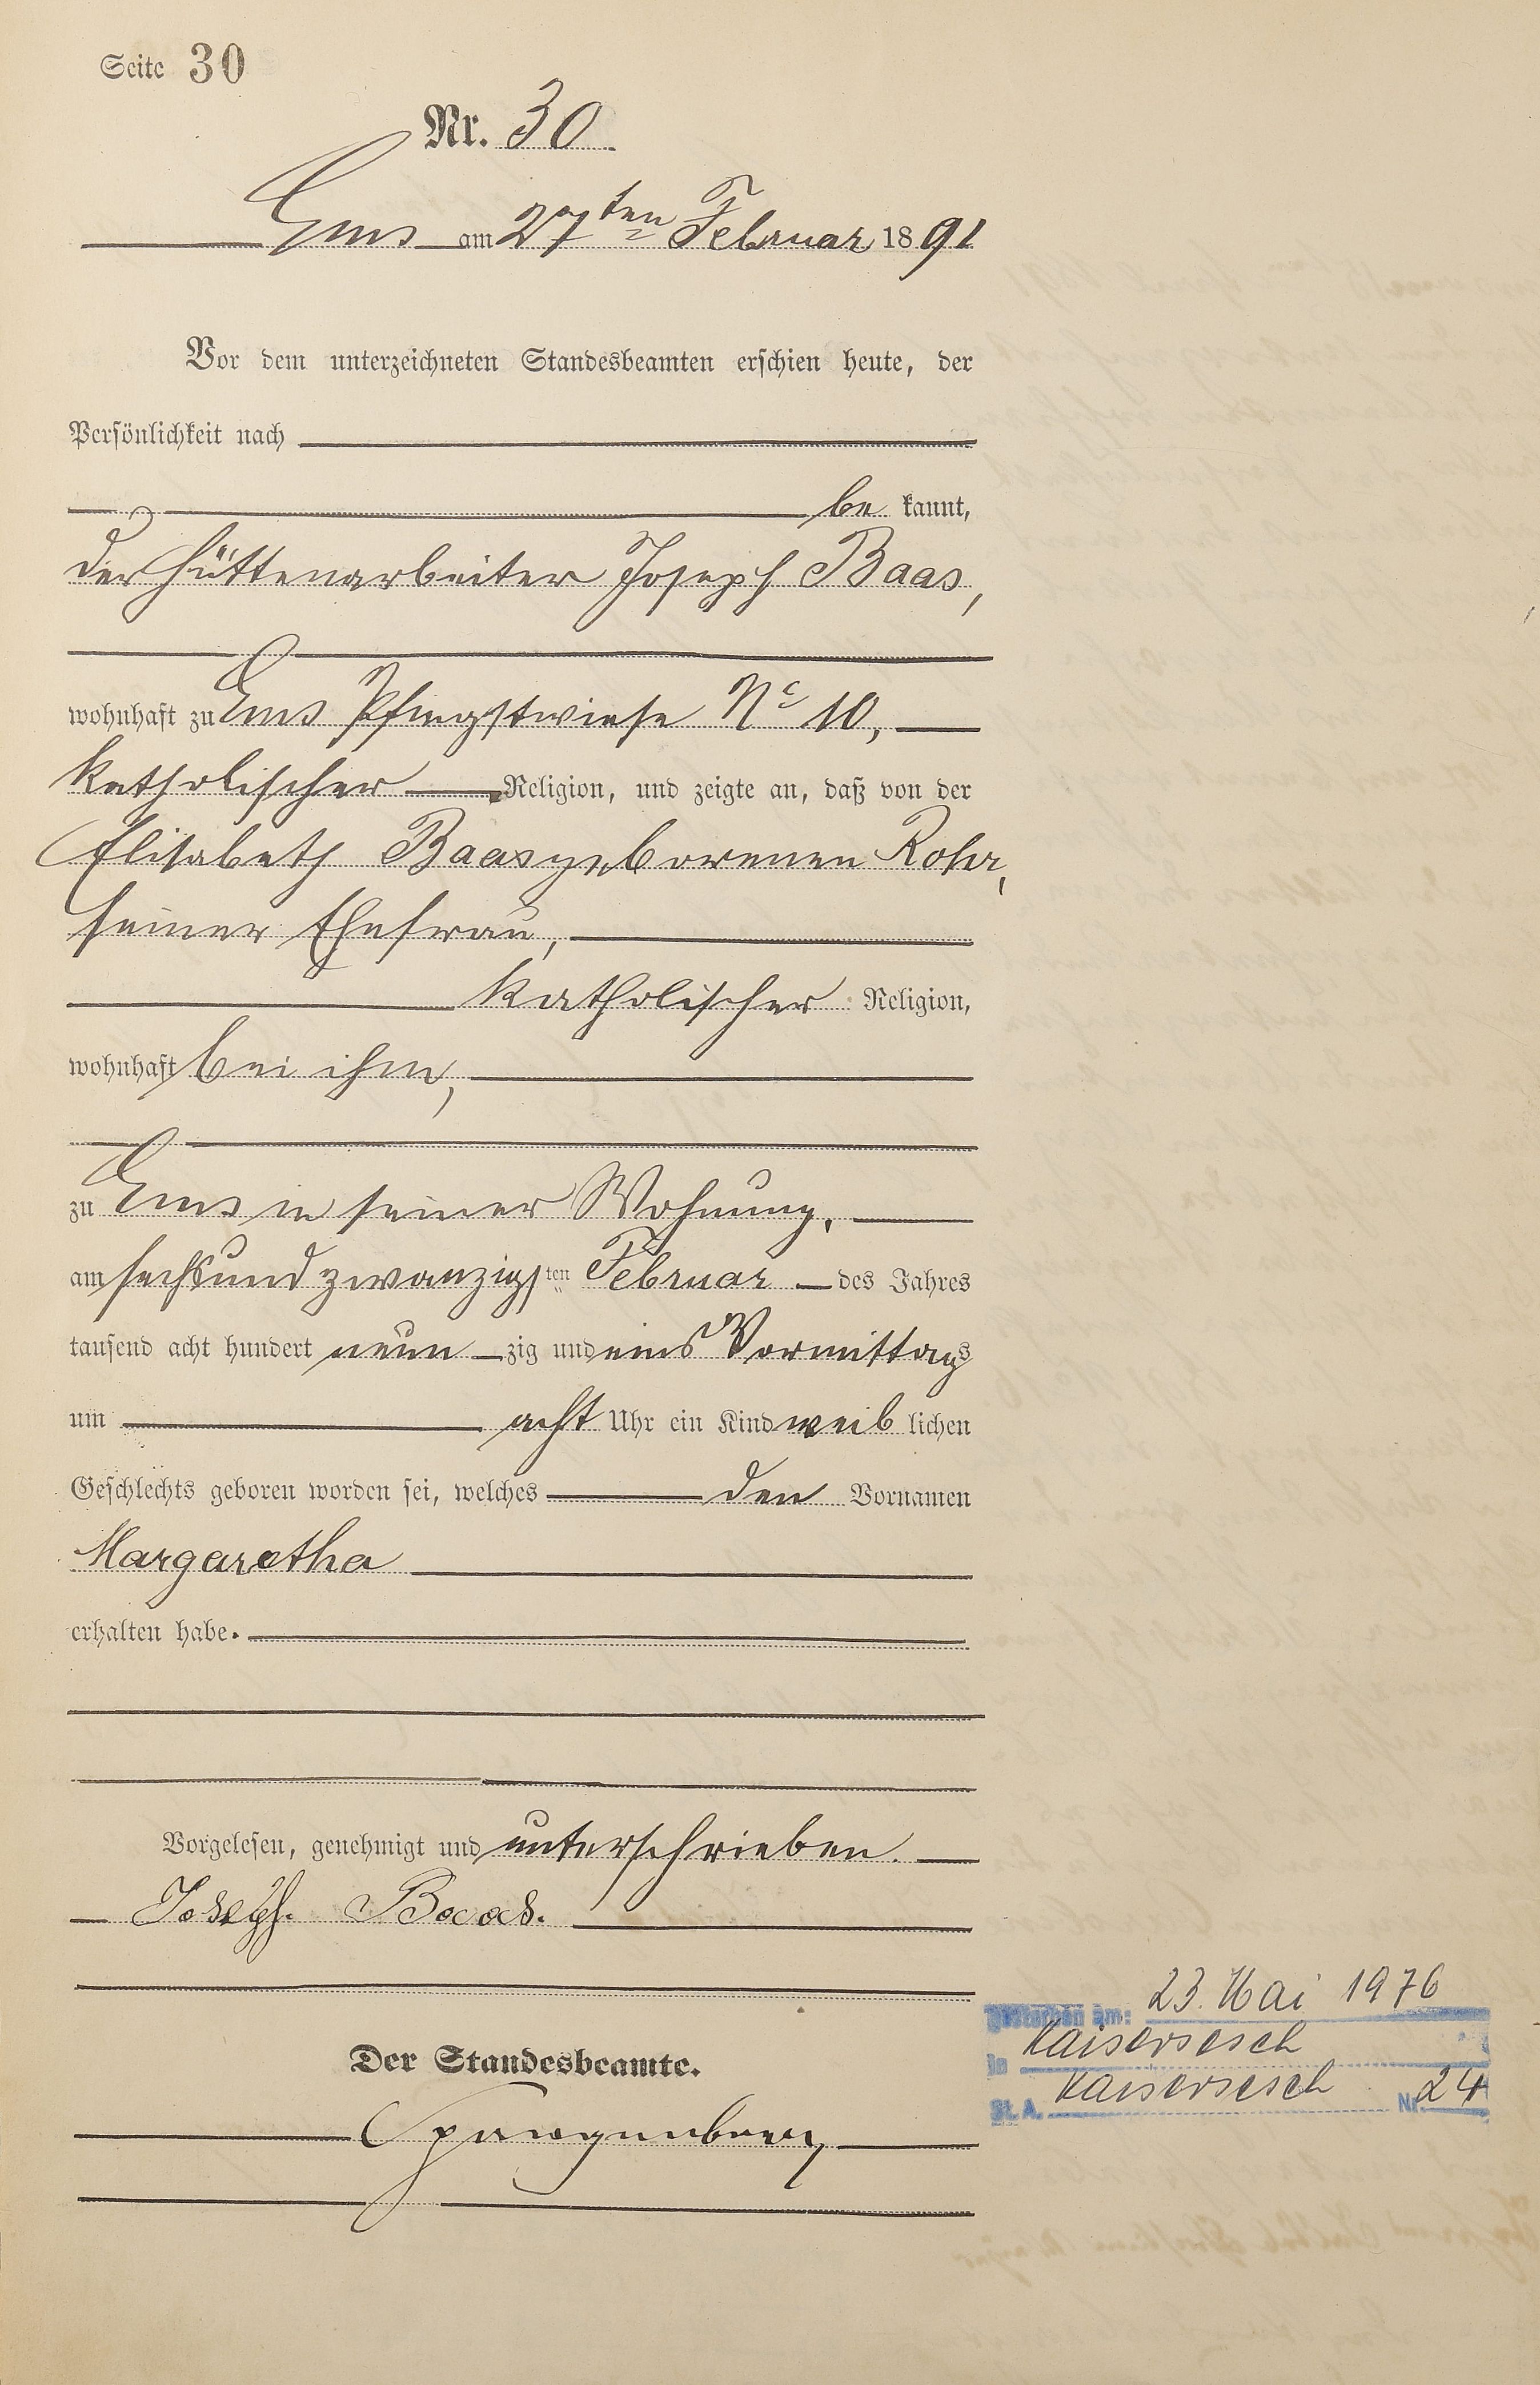 Seite 30
Nr. 30
Ems am 27ten Februar 1891
Vor dem unterzeichneten Standesbeamten erschien heute, der
Persönlichkeit nach
be kannt,
der Hüttenarbeiter Joseph Baas,
wohnhaft zu Ems Pfingstwiese No 10,
katholischer Religion, und zeigte an, daß von der
Elisabeth Baas geborenen Rohr,
seiner Ehefrau,
katholischer Religion,
wohnhaft bei ihm,
zu Ems in seiner Wohnung,
am sechsundzwanzigsten Februar des Jahres
tausend acht hundert neun zig und eins Vormittags
um acht Uhr ein Kind weib lichen
Geschlechts geboren worden sei, welches den Vornamen
Margaretha
erhalten habe.
Vorgelesen, genehmigt und unterschrieben.
Joseph. Baas.
Der Standesbeamte.
Spangenberg
gestorben am: 23. Mai 1976
in Kaisersesch
St. A. Kaisersesch Nr. 24